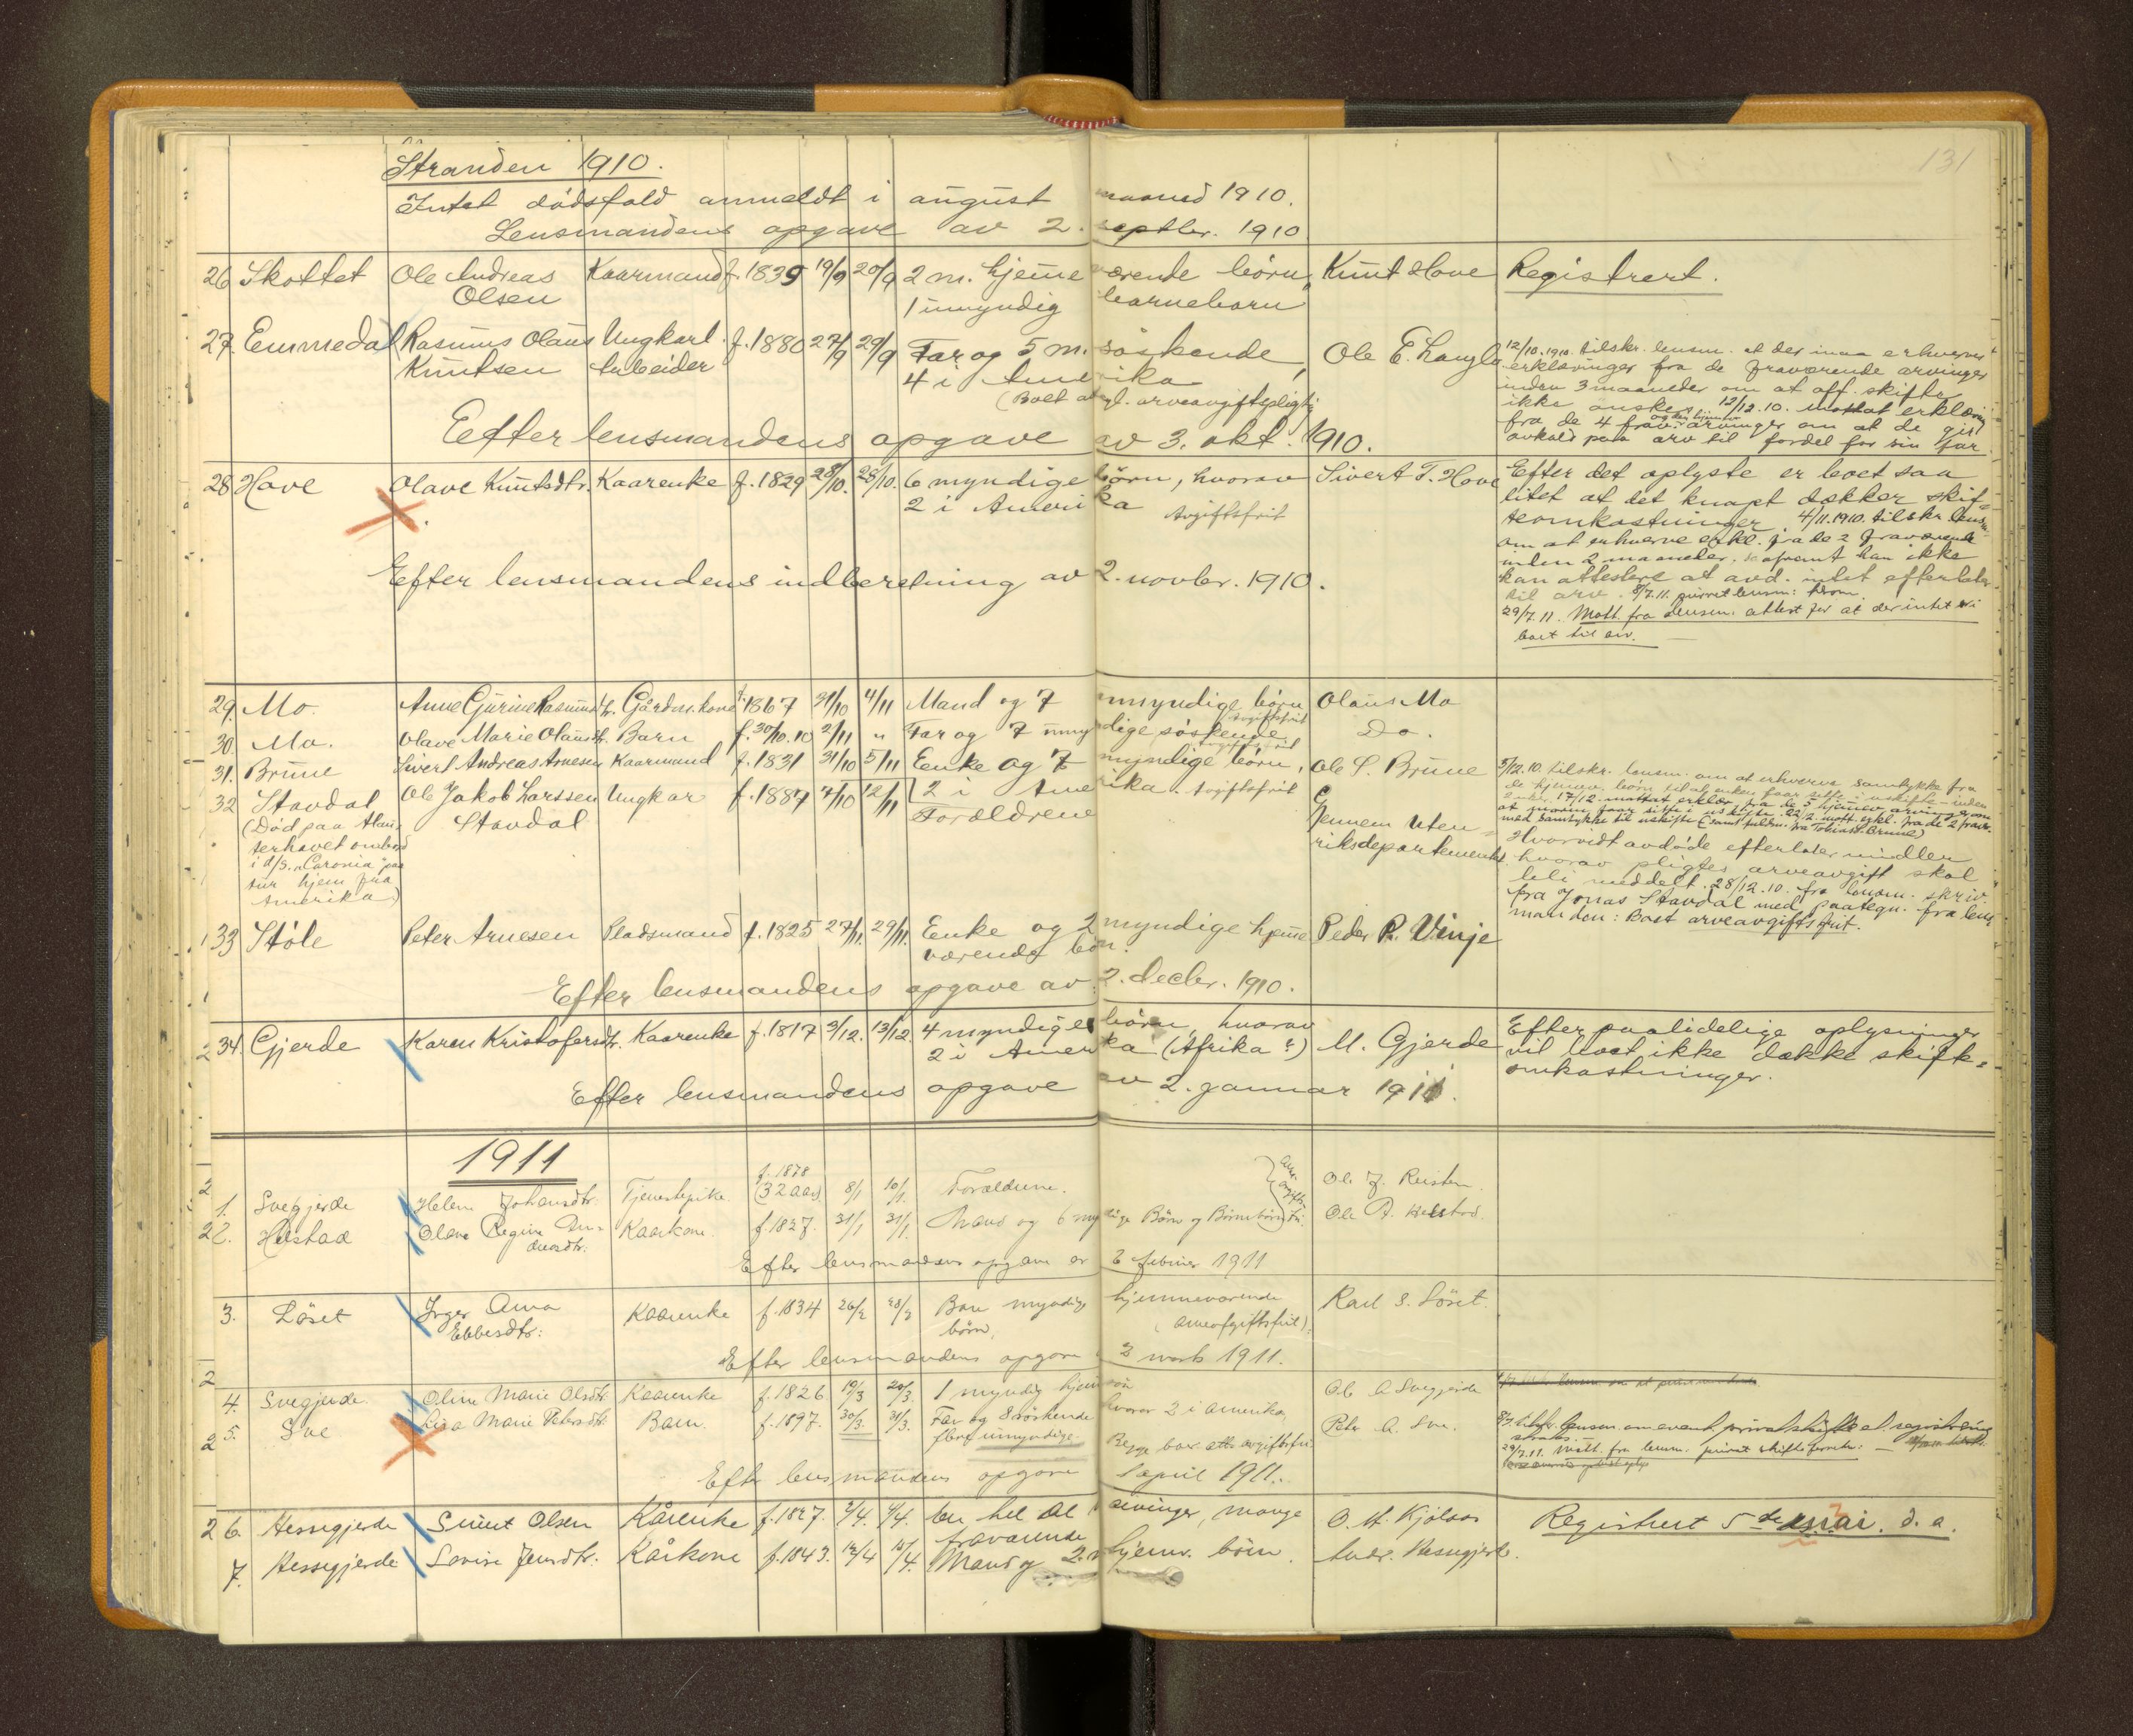 131
Stranden 1910.
Intet dødsfald anmeldt i august maaned 1910.
Lensmandens opgave av 2. septbr. 1910
26 Skottet Ole Andreas Kaarmand f. 1839 19/9 20/9 2 m. hjemmeværende börn, Knut Hove Registrert.
Olsen 1 umyndig barnebarn
27. Emmedal Rasmus Olaus Ungkarl. f. 1880 27/9 29/9 Far og 5 m. söskende, Ole E. Langlo 12/10.1910. tilskr. lensm. at der maa erhverves
Knutsen Arbeider 4 i Amerika erklæringer fra de fraværende arvinger
(Boet avgl. arveavgiftspligtig inden 3 maaneder om at off. skifte
ikke ønskes. 12/12.10. Mottat erklæring
Efter lensmandens opgave av 3. okt. 1910. fra de 4 frav. arvinger om at de gir
avkald paa arv til fordel for sin far
28 Hove Olave Knutsdtr. Kaarenke f. 1829 28/10. 28/10. 6 myndige börn, hvorav Sivert T. Hove Efter det oplyste er boet saa
2 i Amerika Avgiftsfrit litet at det knapt dækker skif=
teomkostninger. 4/11.1910. tilskr. lensm.
om at erhverve erkl. fra de 2 fraværende
inden 2 maaneder. saafremt han ikke
Efter lensmandens indberetning av 2. novbr. 1910. kan attestere at avd. intet efterlater
til arv. 8/7.11. purret lensm: herom.
29/7.11. Mott. fra lensm. attest for at der intet er i
boet til arv.
29. Mo. Anne Gurine Rasmusdtr. Gårdm. kone f. 1867 31/10 4/11 Mand og 7 umyndige börn Olaus Mo
Avgiftsfrit
30. Mo. Olave Marie Olausdtr. Barn f. 30/10.10 2/11 " Far og 7 umyndige söskende Do.
Avgiftsfrit
31. Brune Sivert Andreas Arnesen Kaarmand f. 1831 31/10 5/11 Enke og 7 myndige börn, Ole S. Brune 5/12.10. tilskr. lensm. om at erhverve samtykke fra
2 i Amerika. Avgiftsfrit de hjemmev. börn til at enken faar sitte i uskifte - inden
17/12. mottat erklær. fra de 5 hjemmev. arvinger om
at moren faar sitte i uskifte. 22/2. mott. erkl. fra de 2 frav.
med samtykke til uskifte (samt fuldm. fra Tobias Brune)
32 Stavdal Ole Jakob Larssen Ungkar f. 1887 7/10 12/11 Forældrene Gjennem Uten= Hvorvidt avdöde efterlater midler
(Död paa Atlan= Stavdal riksdepartementet. hvorav pligtes arveavgift skal
terhavet ombord bli meddelt. 28/12.10. fra lensm. skriv.
i d/s. "Caronia" paa fra Jonas Stavdal med paategn. fra lens
tur hjem fra manden: Boet arveavgiftsfrit.
Amerika)
33 Stöle Peter Arnesen Pladsmand f. 1825 27/11. 29/11. Enke og 2 myndige hjemme Peder P. Vinje
værende börn.
Efter lensmandens opgave av 2. decbr. 1910.
34. Gjerde Karen Kristofersdtr. Kaarenke f. 1817 3/12. 13/12. 4 myndige börn, hvorav M. Gjerde Efter paalidelige oplysninger
2 i Amerika (Afrika?) vil boet ikke dække skifte=
omkostninger.
Efter lensmandens opgave av 2. januar 1911.
1911
1. Svegjerde Helene Johansdtr. Tjenestepike f. 1878 (32 aar) 8/1 10/1. Forældrene. Ole J. Reisten
2. Helstad Olave Regine An= Kaarkone. f. 1827. 31/1 31/1. Mand og 6 myndige Börn og Börnebörn Ole A. Helstad.
dersdtr. Arveavgiftsfri.
Efter lensmandens opgave av 2 februar 1911
3. Löset Inger Anna Kaarenke f. 1834 26/2 28/2 Bare myndige hjemmeværende Karl S. Löset.
Ebbesdtr: börn. (arveafgiftsfrit).
Efter lensmandens opgave 3 marts 1911.
4. Svegjerde. Oline Marie Olsdtr. Kaarenke f. 1826. 19/3 20/3. 1 myndig hjem Ole A Svegjerde
5. Sve Lisa Marie Petersdtr. Barn. f. 1897. 30/3. 31/3. Far og 8 söskende hvorav 2 i Amerika Peter A. Sve. tilskr. lensm. om event. privat skifte el. registrering
flere umyndige. Begge boer avgiftsfri 29/7.11. Mott. fra lensm. privat skifteforretn:
Efter lensmandens opgave 1 april 1911.
6. Hessegjerde Sunet Olsen Kårenke f. 1827. 2/4. 4/4. En hel del arvinger, mange O. M. Kjölaas Registrert 5 de mai d. a.
fraværende
7. Hessegjerde Lovise Jensdtr. Kårkone f. 1843. 12/4 15/4. Mand og 2. hjemv. börn. Andr. Hessegjerde.